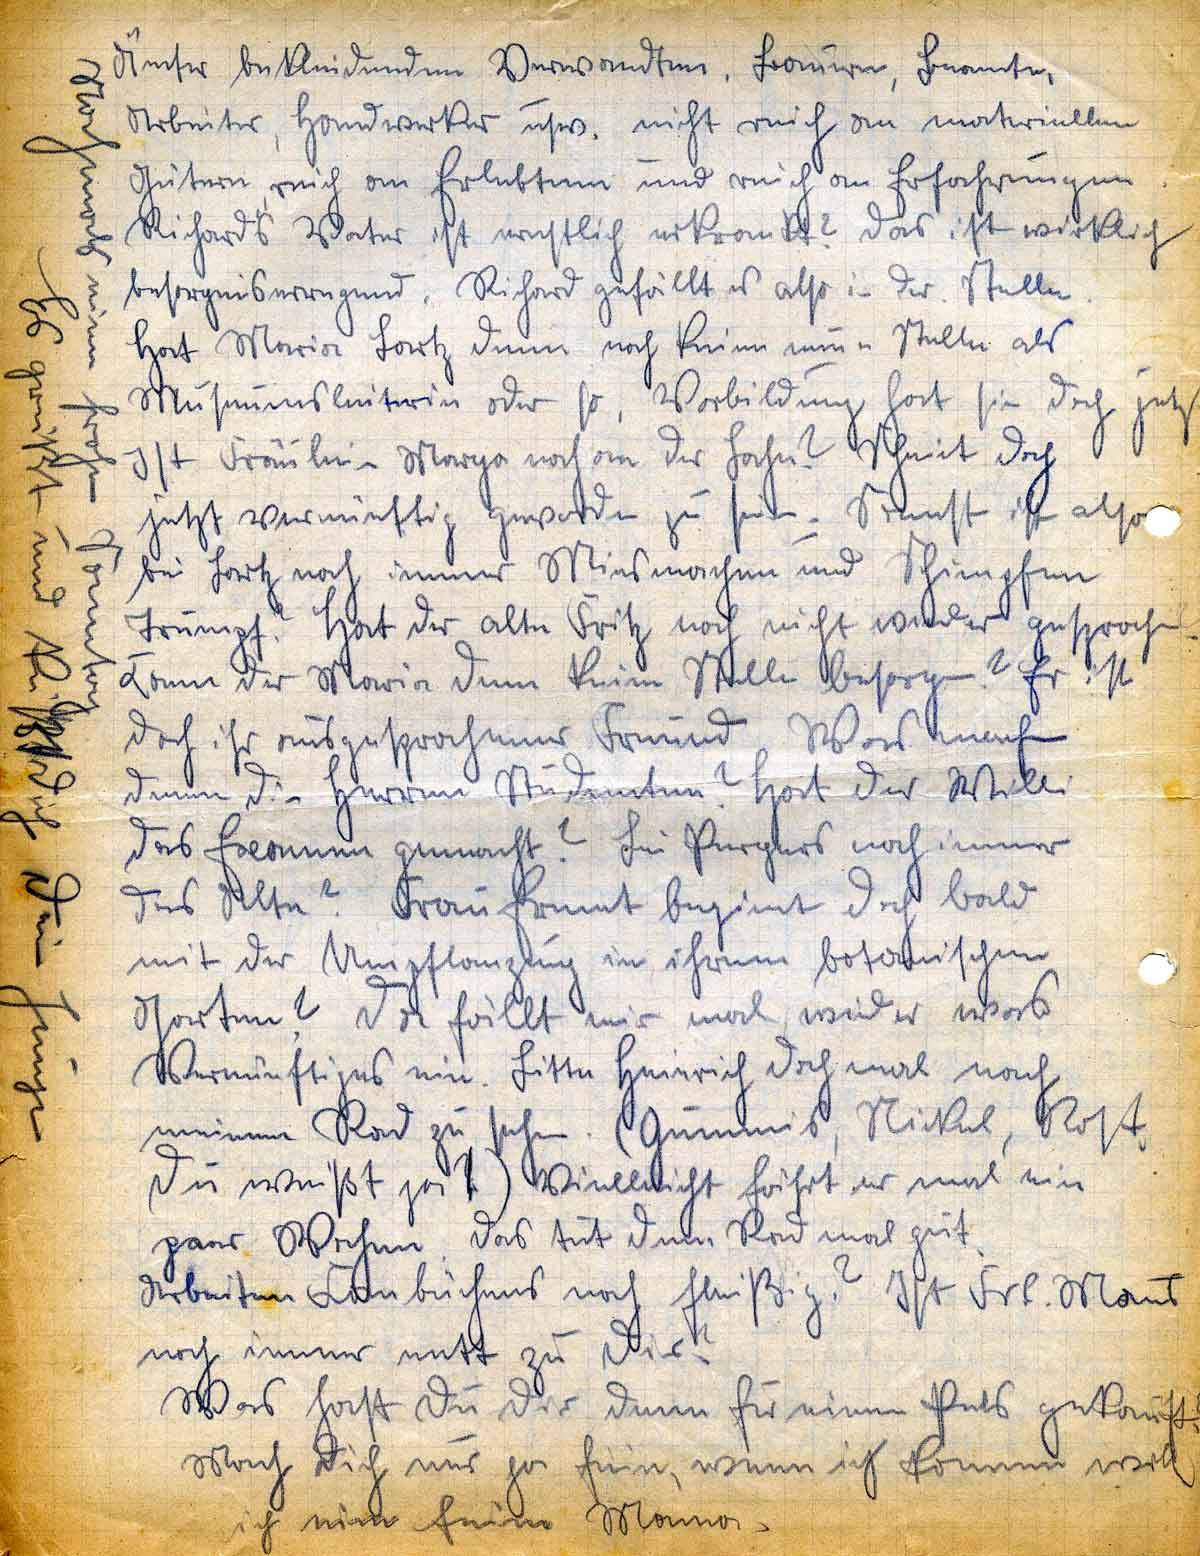 Ämter bekleidenden Verwandten, Bauern, Beamte,
Arbeiter, Handwerker usw. nicht reich an materiellen
Gütern, reich an Erlebtem und reich an Erfahrungen.
Richards Vater ist ernstlich erkrankt? Das ist wirklich
besorgniserregend. Richard gefällt es also in der Stelle.
Hat Maria Bartz denn noch keine neue Stelle als
Museumsleiterin oder so, Vorbildung hat sie doch jetzt
Ist Fräulein Marga noch an der Bahn? Scheint doch
jetzt vernünftig geworden zu sein. Sonst ist also
bei Bartz noch immer Miesmachen und Schimpfen
Trumpf? Hat der alte Fritz noch nicht wieder gesprochen.
Kann der Maria denn keine Stelle besorgen? Er ist
doch ihr ausgesprochener Freund. Was machen
denn die Herren Studenten? Hat der Willi
das Examen gemacht? Bei Pergers noch immer
das Alte? Frau Ernst beginnt doch bald
mit der Umpflanzung in ihrem botanischen
Garten? Da fällt mir mal wieder was
Vernünftiges ein. Bitte Heinrich doch mal nach
meinem Rad zu sehen. (Gummis, Nickel, Rost.
Du weißt ja!) Vielleicht fährt er mal ein
paar Wochen. Das tut dem Rad mal gut.
Arbeiten noch fleißig? Ist Frl. Maus
noch immer nett zu Dir?
Was hast Du Dir denn für einen Pels gekauft?
Mach Dich nur ja fein, wenn ich komme will
ich eine feine Mama.
Nochmals einen frohen Sonntag
Es grüßt und küßt Dich Dein Junge